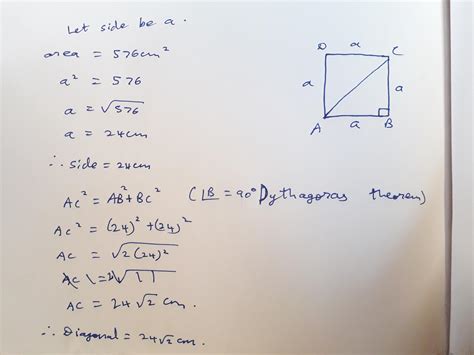 Let side be a.
area = 576cm²
a² = 576
a = √576
a = 24cm
∴ side = 24cm
AC² = AB² + BC² (∠B = 90° Pythagoras theorem)
AC² = (24)² + (24)²
AC = √2(24)²
AC = 24√2 cm.
∴ Diagonal = 24√2 cm.
D a C
a a
A a B